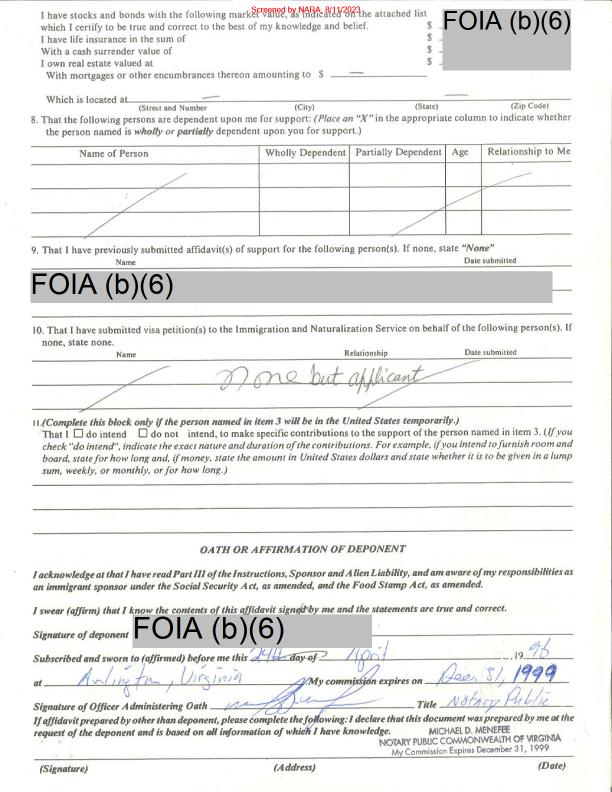 Screened by NARA, 8/11/2023
I have stocks and bonds with the following market value, as indicated on the attached list
which I certify to be true and correct to the best of my knowledge and belief. $
FOIA (b)(6)
I have life insurance in the sum of $
With a cash surrender value of $
I own real estate valued at $
With mortgages or other encumbrances thereon amounting to $ —
Which is located at —
(Street and Number) (City) (State) (Zip Code)
8. That the following persons are dependent upon me for support: (Place an "X" in the appropriate column to indicate whether
the person named is wholly or partially dependent upon you for support.)
Name of Person Wholly Dependent Partially Dependent Age Relationship to Me
9. That I have previously submitted affidavit(s) of support for the following person(s). If none, state "None"
Name Date submitted
FOIA (b)(6)
10. That I have submitted visa petition(s) to the Immigration and Naturalization Service on behalf of the following person(s). If
none, state none.
Name Relationship Date submitted
none but applicant
11.(Complete this block only if the person named in item 3 will be in the United States temporarily.)
That I ☐ do intend ☐ do not intend, to make specific contributions to the support of the person named in item 3. (If you
check "do intend", indicate the exact nature and duration of the contributions. For example, if you intend to furnish room and
board, state for how long and, if money, state the amount in United States dollars and state whether it is to be given in a lump
sum, weekly, or monthly, or for how long.)
OATH OR AFFIRMATION OF DEPONENT
I acknowledge at that I have read Part III of the Instructions, Sponsor and Alien Liability, and am aware of my responsibilities as
an immigrant sponsor under the Social Security Act, as amended, and the Food Stamp Act, as amended.
I swear (affirm) that I know the contents of this affidavit signed by me and the statements are true and correct.
Signature of deponent FOIA (b)(6)
Subscribed and sworn to (affirmed) before me this 24th day of April ,19 96
at Arlington, Virginia My commission expires on Decen 31, 1999
Signature of Officer Administering Oath Title Notary Public
If affidavit prepared by other than deponent, please complete the following: I declare that this document was prepared by me at the
request of the deponent and is based on all information of which I have knowledge.
MICHAEL D. MENEFEE
NOTARY PUBLIC COMMONWEALTH OF VIRGINIA
My Commission Expires December 31, 1999
(Signature) (Address) (Date)